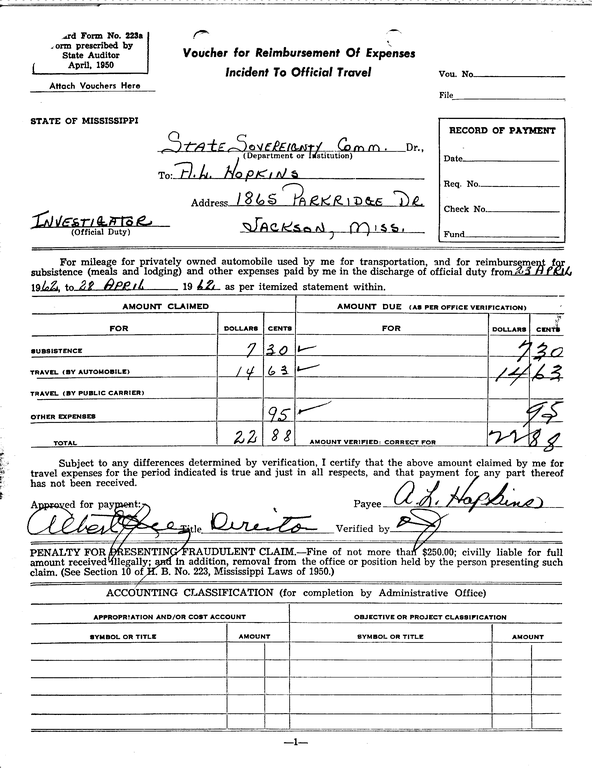 rd Form No. 223a
orm prescribed by
State Auditor
April, 1950
Attach Vouchers Here
Voucher for Reimbursement Of Expenses
Incident To Official Travel
Vou. No.
File
STATE OF MISSISSIPPI
RECORD OF PAYMENT
Date
Req. No.
Check No.
Fund
STATE SOVEREIGNTY COMM. Dr.,
(Department or Institution)
To: A.L. HOPKINS
Address 1865 PARKRIDGE DR
INVESTIGATOR JACKSON, MISS.
(Official Duty)
For mileage for privately owned automobile used by me for transportation, and for reimbursement for
subsistence (meals and lodging) and other expenses paid by me in the discharge of official duty from 23 APRIL
1962, to 28 APRIL 1962 as per itemized statement within.
AMOUNT CLAIMED AMOUNT DUE (AS PER OFFICE VERIFICATION)
FOR DOLLARS CENTS FOR DOLLARS CENTS
SUBSISTENCE 7 30 7 30
TRAVEL (BY AUTOMOBILE) 14 63 14 63
TRAVEL (BY PUBLIC CARRIER)
OTHER EXPENSES 95 95
TOTAL 22 88 AMOUNT VERIFIED: CORRECT FOR 22 88
Subject to any differences determined by verification, I certify that the above amount claimed by me for
travel expenses for the period indicated is true and just in all respects, and that payment for any part thereof
has not been received.
Approved for payment: Payee A.L. Hopkins
Albert Title Director Verified by
PENALTY FOR PRESENTING FRAUDULENT CLAIM.—Fine of not more than $250.00; civilly liable for full
amount received illegally; and in addition, removal from the office or position held by the person presenting such
claim. (See Section 10 of H. B. No. 223, Mississippi Laws of 1950.)
ACCOUNTING CLASSIFICATION (for completion by Administrative Office)
APPROPRIATION AND/OR COST ACCOUNT OBJECTIVE OR PROJECT CLASSIFICATION
SYMBOL OR TITLE AMOUNT SYMBOL OR TITLE AMOUNT
—1—